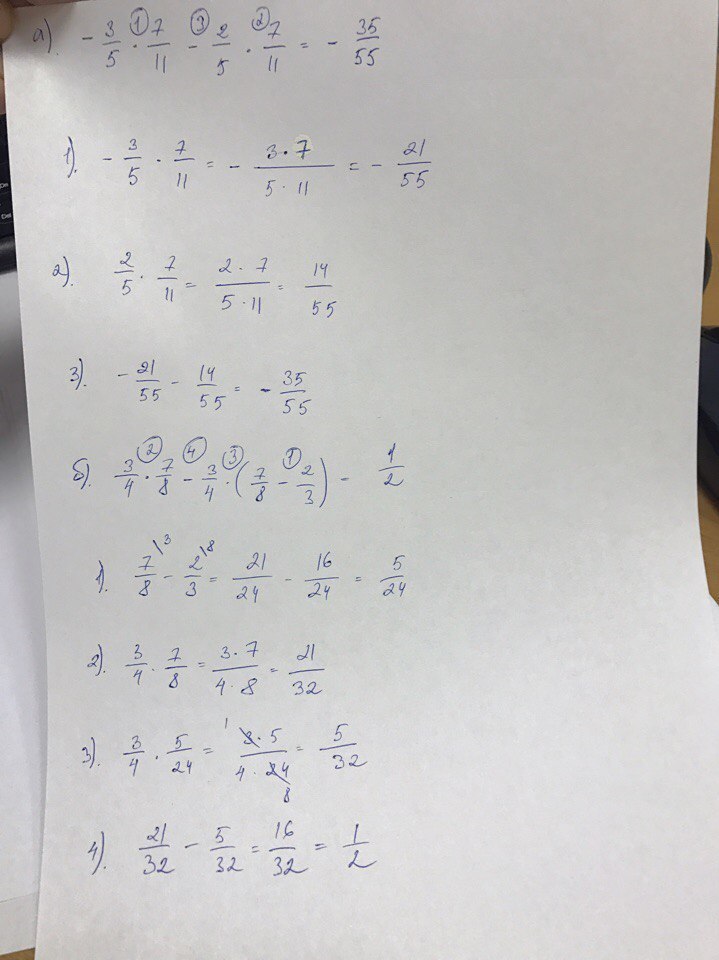 а). - 3/5 ① · 7/11 ③ - 2/5 ② · 7/11 = - 35/55
1). - 3/5 · 7/11 = - 3·7/5·11 = - 21/55
2). 2/5 · 7/11 = 2·7/5·11 = 14/55
3). - 21/55 - 14/55 = - 35/55
б). 3/4 ② · 7/8 ④ - 3/4 ③ · (7/8 ① - 2/3) - 1/2
1). 7/8 \3 - 2/3 \8 = 21/24 - 16/24 = 5/24
2). 3/4 · 7/8 = 3·7/4·8 = 21/32
3). 3/4 · 5/24 = 1 3·5/4·24 8 = 5/32
4). 21/32 - 5/32 = 16/32 = 1/2